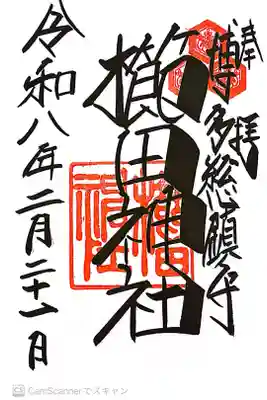 奉拝
博多総鎮守
櫛田神社
令和八年二月二十一日
CamScannerでスキャン